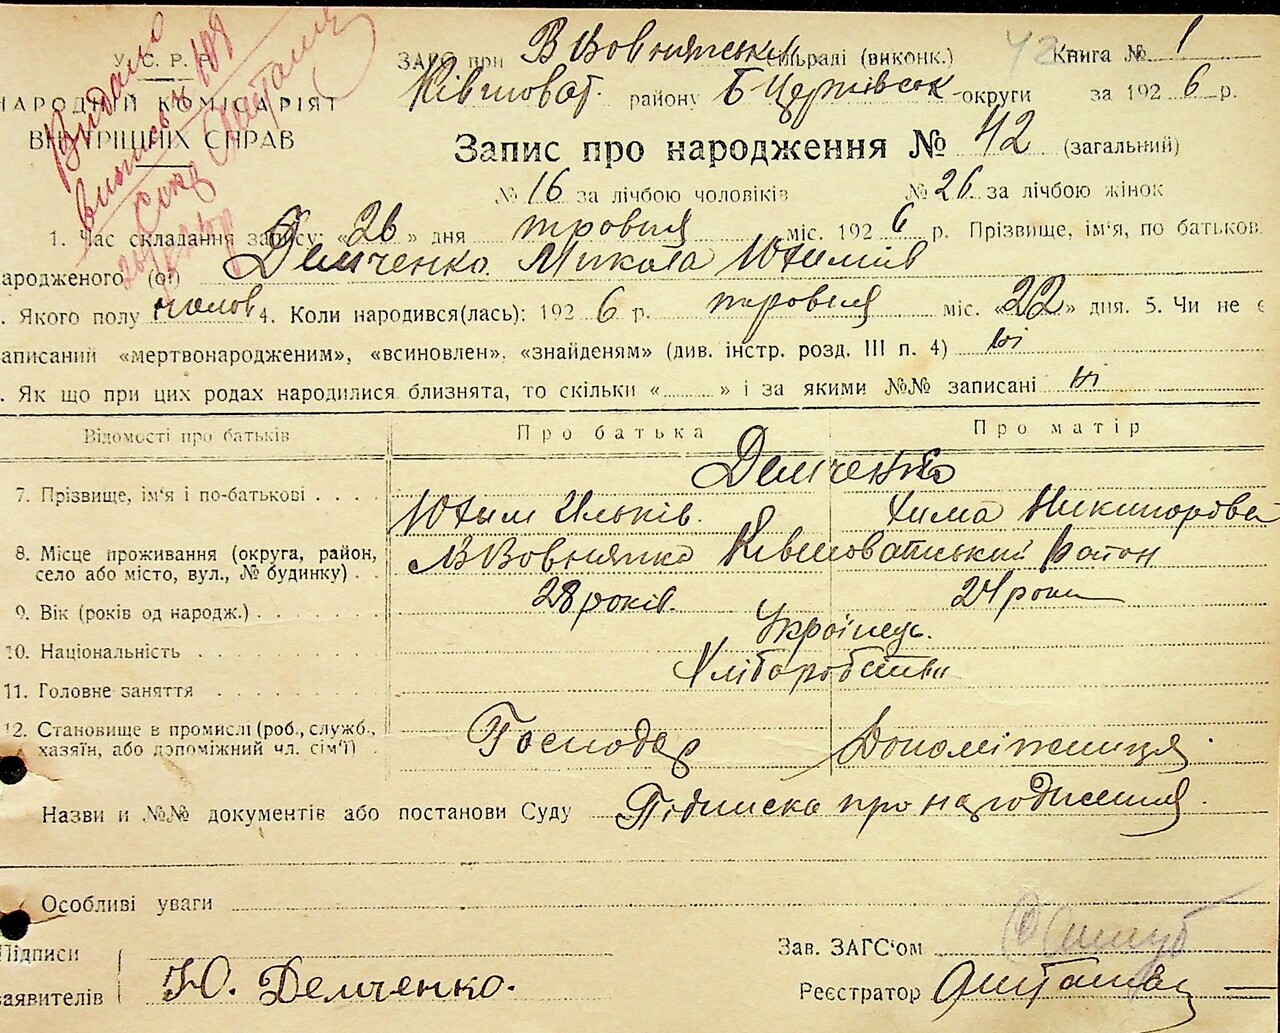 У. С. Р. Р.
НАРОДНИЙ КОМІСАРІЯТ
ВНУТРІШНІХ СПРАВ
Видано
випись ч 188
ЗАГС при В Вовнянськ сільраді (виконк.) 42 Книга № 1
Ківшоват. району Б-Церківськ округи за 1926 р.
Запис про народження № 42 (загальний)
№ 16 за лічбою чоловіків № 26 за лічбою жінок
1. Час складання запису: «26» дня травня міс. 1926 р. Прізвище, ім'я, по батьков
ародженого (ої) Демченко Микола Юхимів
. Якого полу чолов 4. Коли народився(лась): 1926 р. травня міс. «22» дня. 5. Чи не є
аписаний «мертвонародженим», «всиновлен», «знайденям» (див. інстр. розд. III п. 4) ні
. Як що при цих родах народилися близнята, то скільки «......» і за якими №№ записані ні
Відомості про батьків Про батька Про матір
Демченко
7. Прізвище, ім'я і по-батькові . . . . Юхим Ильків. Хима Никипорова
8. Місце проживання (округа, район, село або місто, вул., № будинку) . . В Вовнянко Ківшоватський район
9. Вік (років од народж.) . . . . . . 28 років. 24 роки
10. Національність . . . . . . . Українець.
11. Головне заняття . . . . . . . Хліборобство
12. Становище в промислі (роб., служб., хазяїн, або допоміжний чл. сім'ї) . Господар Допоміжниця.
Назви и №№ документів або постанови Суду Підписка про народження.
Особливі уваги
Підписи
Зав. ЗАГС'ом
заявителів Ю. Демченко.
Реєстратор